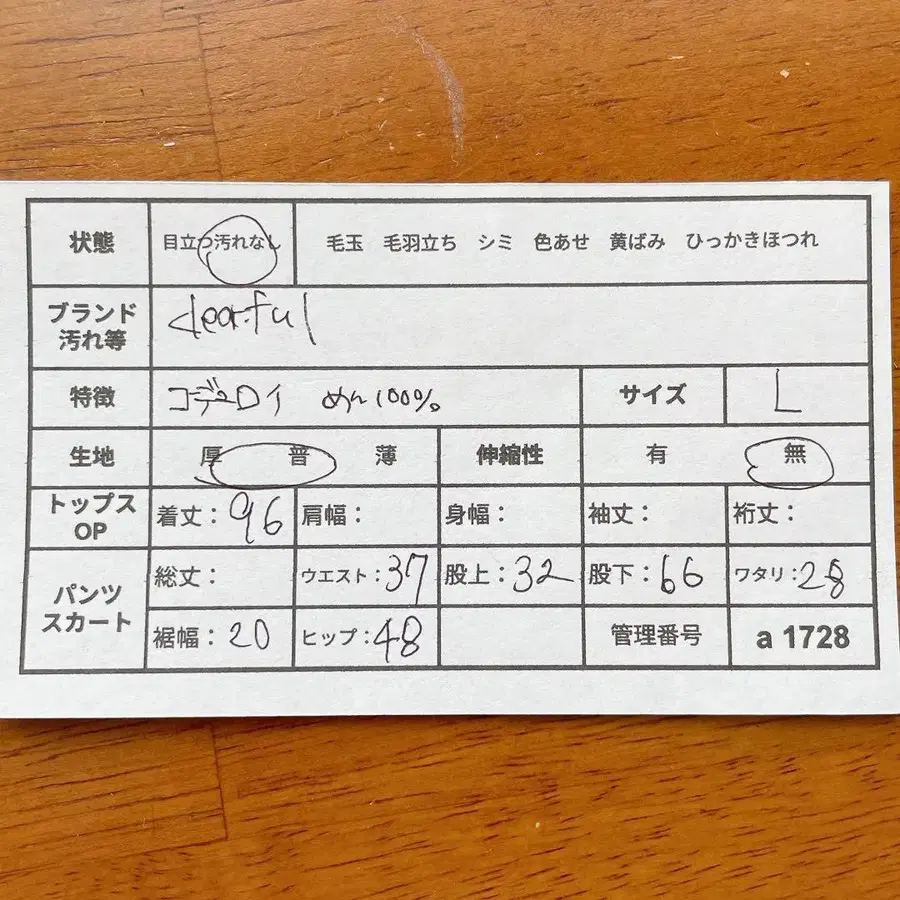 状態 目立つ汚れなし 毛玉 毛羽立ち シミ 色あせ 黄ばみ ひっかきほつれ
ブランド
汚れ等
clearful
特徴 コーデュロイ めん100% サイズ L
生地 厚 普 薄 伸縮性 有 無
トップス
OP
着丈：96 肩幅： 身幅： 袖丈： 裄丈：
パンツ
スカート
総丈： ウエスト：37 股上：32 股下：66 ワタリ：28
裾幅：20 ヒップ：48 管理番号 a 1728